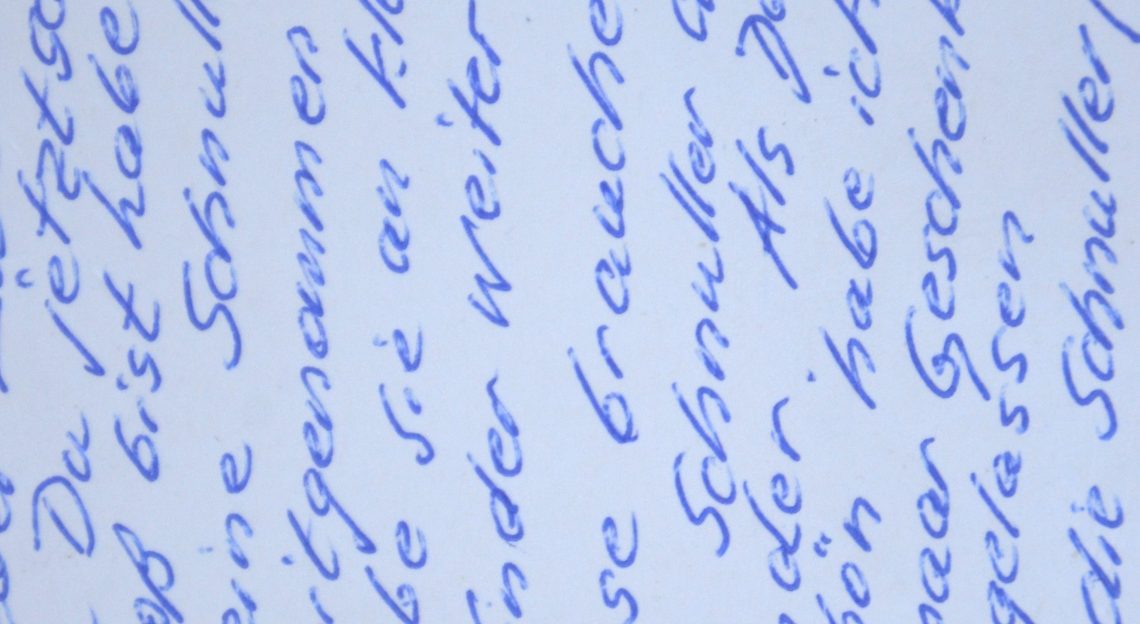 Du jetzt so
oß bist habe
eine Schnull
itgenommen
be sie an kle
inder weiter
se brauche
Schnuller
der. Als Da
hön habe ich
paar Geschenk
gelassen
die Schnuller,